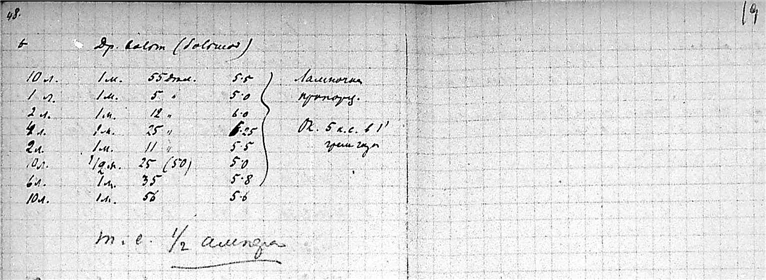 48.
19
Др. Solom (Solomos)
10 л. 1 м. 55 дел. 5.5
1 л. 1 м. 5 " 5.0
2 л. 1 м. 12 " 6.0
4 л. 1 м. 25 " 6.25
2 л. 1 м. 11 " 5.5
10 л. 1/2 м. 25 (50) 5.0
6 л. 1 м. 35 5.8
10 л. 1 м. 56 5.6
Лампочки
пропорц.
Ок. 5 к.с. в 1'
т. е. 1/2 ампера